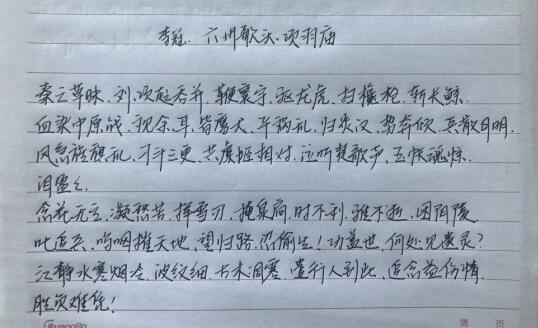 李冠. 六州歌头、项羽庙
秦亡草昧、刘、项起吞并、鞭寰宇、驱龙虎、扫欃枪、斩长鲸、
血染中原战、视余耳、皆鹰犬、平祸乱、归炎汉、势奔倾、兵散月明、
风急旌旗乱、刁斗三更、共虞姬相对、泣听楚歌声、玉帐魂惊、
泪盈々、
念花无主、凝愁苦、挥雪刃、掩泉扃、时不利、骓不逝、困阴陵、
叱追兵、呜咽摧天地、望归路、忍偷生!功盖世、何处见遗灵?
江静水寒烟冷、波纹细、古木凋零、遣行人到此、追念益伤情、
胜负难凭!
GuangBo 第 页